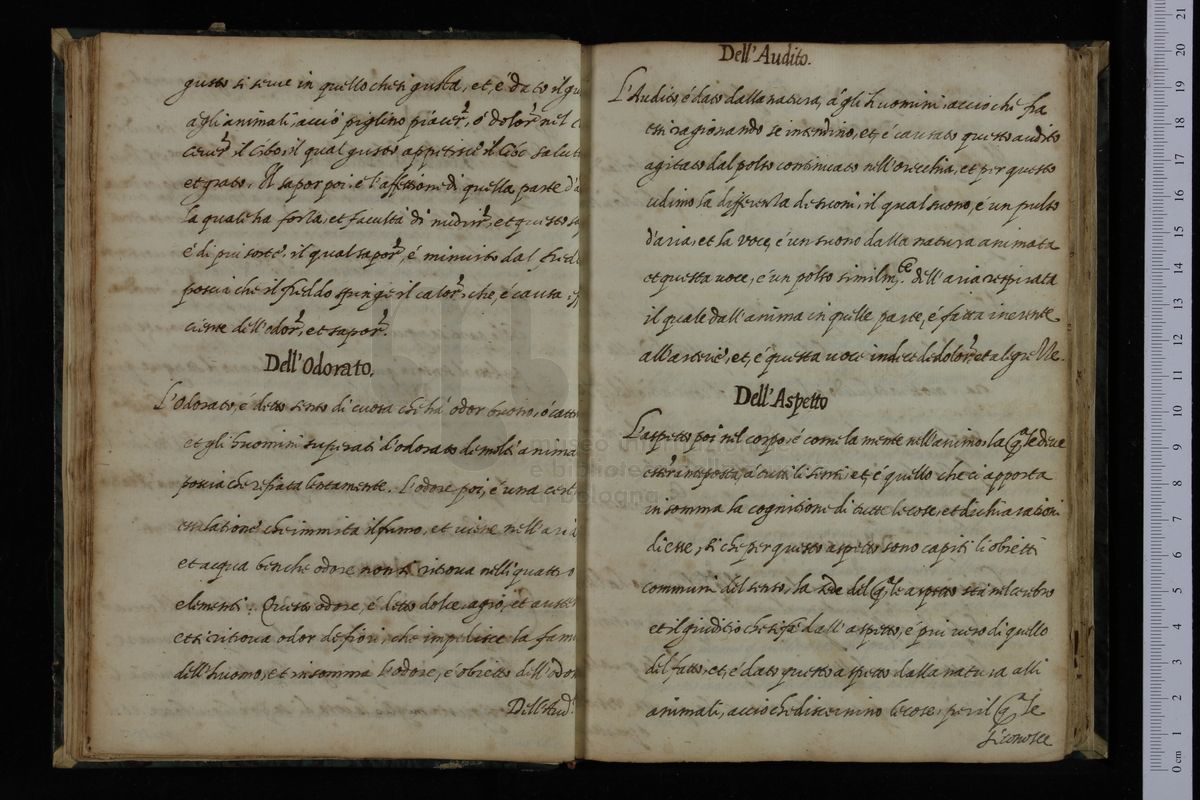 gusto si serue in quello che si gusta, et, é dato il gu
agli animali, acciò piglino piacer, ó dolor nel
ceuer il cibo, il qual gusto appetisce il cibo salut
et grato. Il sapor poi, é l'affettione di quella parte d'a
la quale ha forza, et facultà di nudrir, et questo sa
é di piu sorte. il qual sapor, é minuito dal fred
poscia che il freddo spinge il calor, che, é causa ef
ciente dell'odor, et sapor.
Dell'Odorato.
L'Odorato, é detto senso di cuosa che há odor buono, ó catti
et gli huomini superati d'odorato da molti anima
poscia che refiata lentamente. L'odore poi, é una cert
essalatione che immita il fumo, et uiene nell'aria
et acqua benche odore non si ritroua nelli quattro
elementi. Questo odore, é detto dolce, agro, et auster
et si ritroua odor de fiori, che impedisce la fam
dell'huomo, et insomma l'odore, é obietto dell'odor
Dell'Aud.
Dell'Audito.
L'Audito, é dato dalla natura, á gli huomini, accioche fra
essi ragionando se intendino, et, é causato questo audito
agitato dal polso continuato nell'orecchia, et per questo
udimo la differenza de suoni, il qual suono, é un pulso
d'aria, et la voce, é un suono dalla natura animata
et questa uoce, é un polso similmte. dell'aria respirata
il quale dall'anima in quelle parte, é fatta inerente
all'arterie, et, é questa uoce indice de dolor, et alegrezze.
Dell'Aspetto
L'aspetto poi nel corpo, é come la mente nell'animo, la qle dice
esser anteposta, á tutti li sensi et, é quello che ci apporta
in somma la cognitione di tutte le cose, et dechiarationi
di esse, si che per questo aspetto sono capiti li obietti
communi del senso, la sede del qle aspetto stá nel cerebro
et il giuditio che si fá dall'aspetto, é piu uero di quello
del fatto, et, é dato questo aspetto dalla natura alli
animali, accioche discernino le cose, per il qle
si conosce
museo internazionale
e biblioteca della musica
di bologna